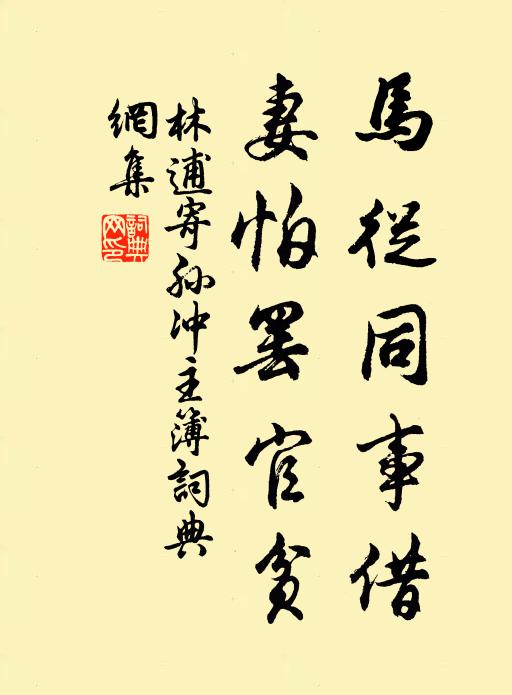 馬從同事借
妻怕罷官貧
林逋寄孙冲主簿詞典
網集
詞典
网印